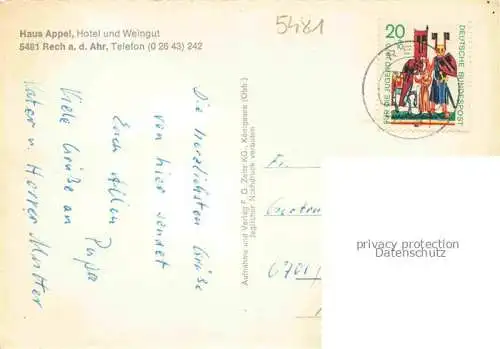 Haus Appel, Hotel und Weingut
5481 Rech a. d. Ahr, Telefon (0 26 43) 242
5481
20
FÜR DIE JUGEND 1970
DEUTSCHE BUNDESPOST
Die herzlichsten Grüße
von hier sendet
Euch Allen Papa
Viele Grüße an
Vater u. Mutter
Aufnahme und Verlag F. G. Zeitz KG., Königssee (Obb.)
Jeglicher Nachdruck verboten
Fr.
6701
privacy protection
Datenschutz